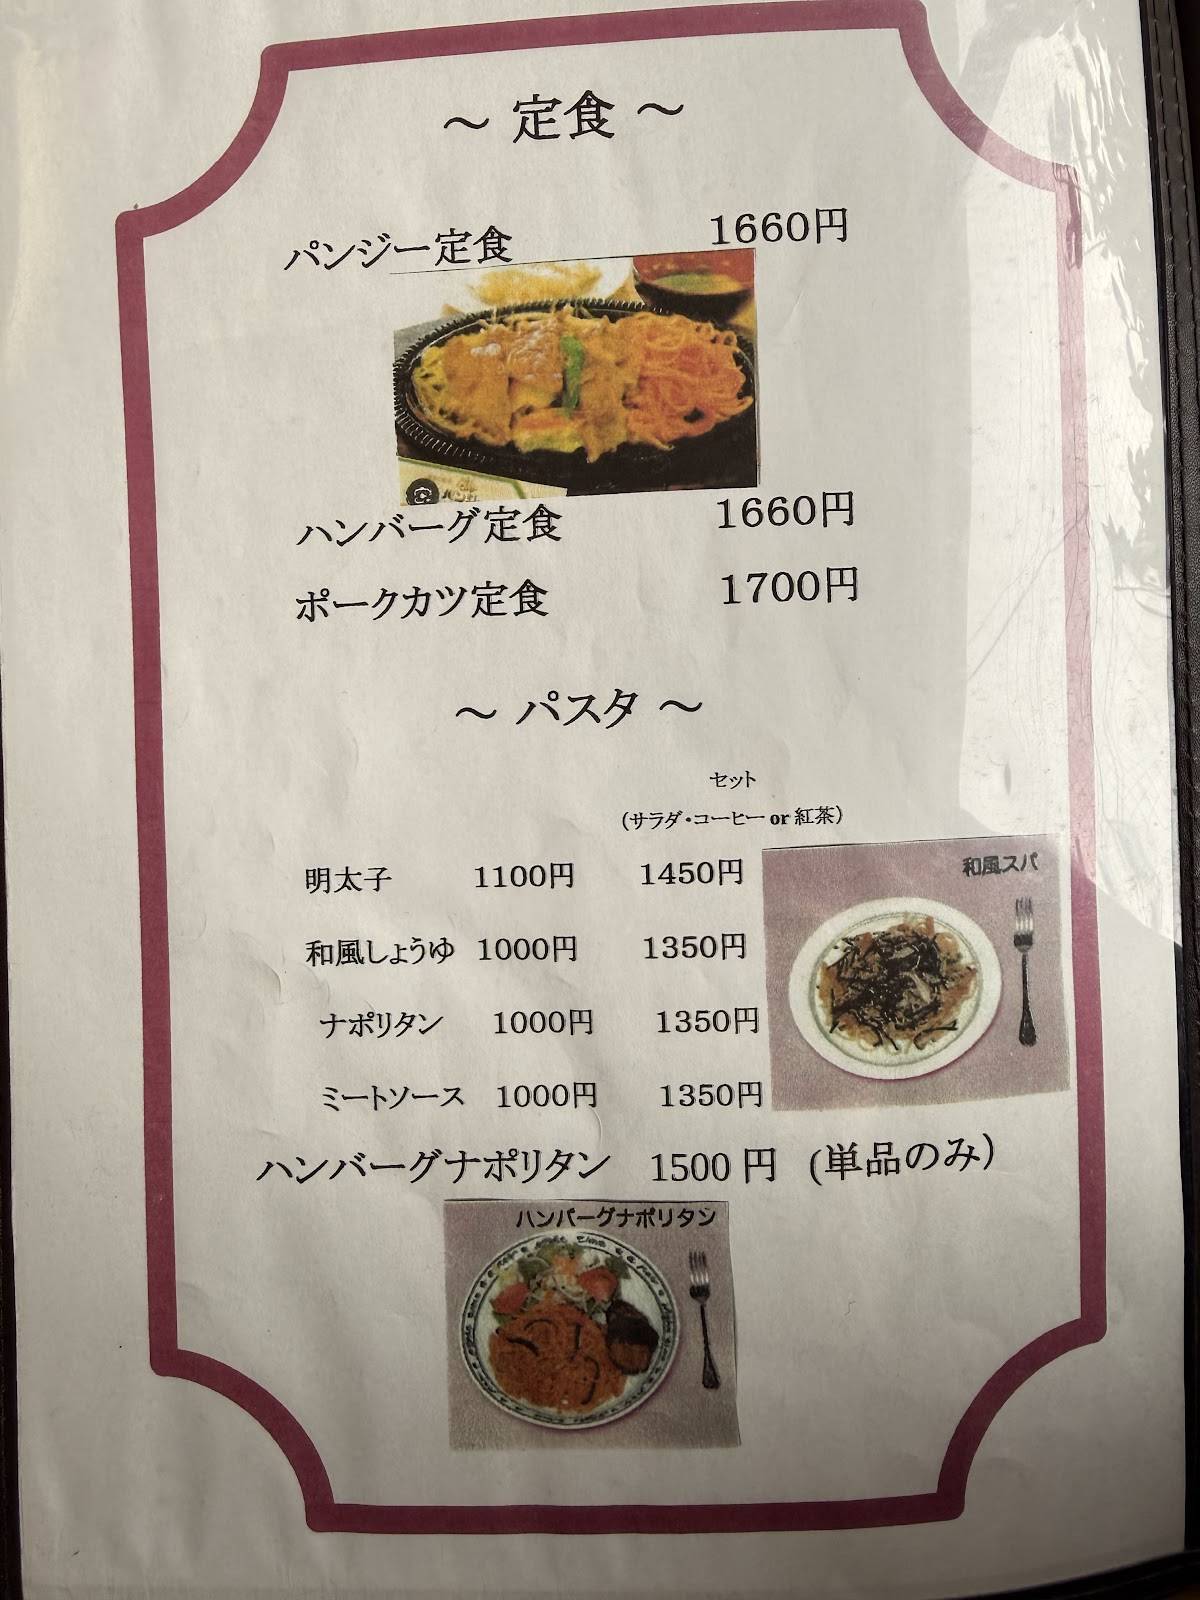 ～ 定食 ～
パンジー定食 1660円
ハンバーグ定食 1660円
ポークカツ定食 1700円
～ パスタ ～
セット
（サラダ・コーヒー or 紅茶）
明太子 1100円 1450円
和風スパ
和風しょうゆ 1000円 1350円
ナポリタン 1000円 1350円
ミートソース 1000円 1350円
ハンバーグナポリタン 1500 円 (単品のみ）
ハンバーグナポリタン